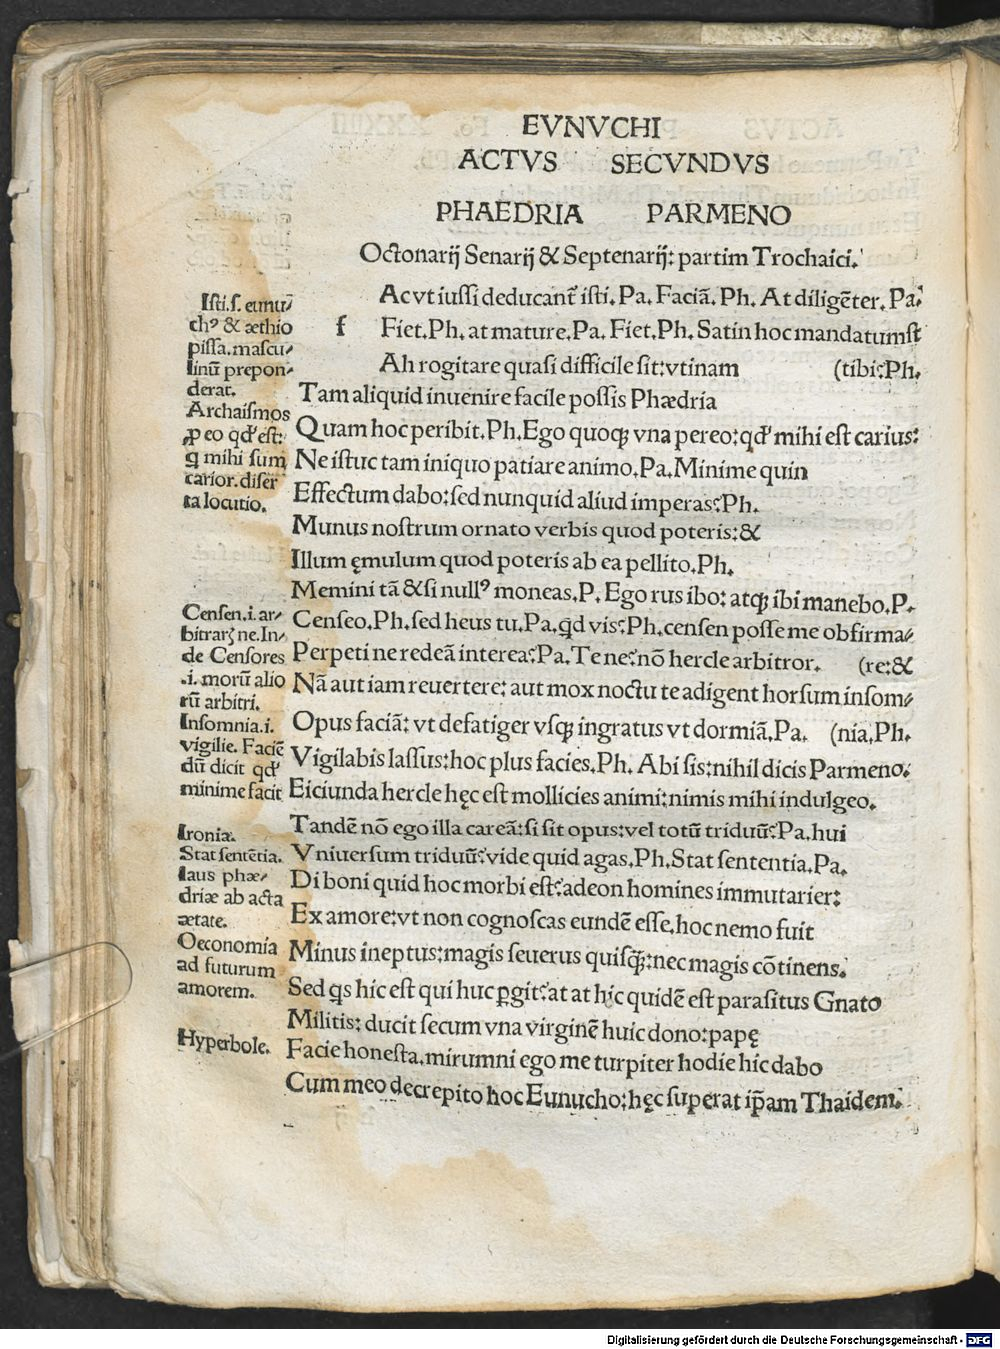 EVNVCHI
ACTVS SECVNDVS
PHAEDRIA PARMENO
Octonarij Senarij & Septenarij: partim Trochaici.
Ac vt iussi deducant̃ isti. Pa. Faciã. Ph. At diligẽter. Pa.
f Fiet. Ph. at mature. Pa. Fiet. Ph. Satin hoc mandatumst
Ah rogitare quasi difficile sit: vtinam (tibi? Ph.
Tam aliquid inuenire facile possis Phædria
Quam hoc peribit. Ph. Ego quoqꝫ vna pereo: qđ mihi est carius:
Ne istuc tam iniquo patiare animo. Pa. Minime quin
Effectum dabo: sed nunquid aliud imperas? Ph.
Munus nostrum ornato verbis quod poteris: &
Illum ęmulum quod poteris ab ea pellito. Ph.
Memini tã & si nullꝰ moneas. P. Ego rus ibo: atqꝫ ibi manebo. P.
Censeo. Ph. sed heus tu. Pa. qd vis? Ph. censen posse me obfirma/
Perpeti ne redeã interea? Pa. Te ne? nõ hercle arbitror. (re: &
Nã aut iam reuertere: aut mox noctu te adigent horsum insom/
Opus faciã: vt defatiger vsqꝫ ingratus vt dormiã. Pa. (nia. Ph.
Vigilabis lassus: hoc plus facies. Ph. Abi sis: nihil dicis Parmeno.
Eiciunda hercle hęc est mollicies animi: nimis mihi indulgeo.
Tandẽ nõ ego illa careã: si sit opus: vel totũ triduũ? Pa. hui
Vniuersum triduũ? vide quid agas. Ph. Stat sententia. Pa.
Di boni quid hoc morbi est? adeon homines immutarier:
Ex amore: vt non cognoscas eundẽ esse. hoc nemo fuit
Minus ineptus: magis seuerus quisqꝫ̃: nec magis cõtinens.
Sed qs hic est qui huc ꝑgit? at at hic quidẽ est parasitus Gnato
Militis: ducit secum vna virginẽ huic dono: papę
Facie honesta. mirumni ego me turpiter hodie hic dabo
Cum meo decrepito hoc Eunucho: hęc superat ip̃am Thaidem.
Isti. s. eunu/
chꝰ & æthio
pissa. mascu/
linũ prepon/
derat.
Archaismos
ꝓ eo qđ est:
q mihi sum
carior. diser
ta locutio.
Censen. i. ar/
bitrarꝫ ne. In/
de Censores
.i. morũ alio
rũ arbitri.
Insomnia. i.
vigilie. Faciẽ
dũ dicit qđ
minime facit
Ironia.
Stat sentẽtia.
laus phæ/
driæ ab acta
ætate.
Oeconomia
ad futurum
amorem.
Hyperbole.
Digitalisierung gefördert durch die Deutsche Forschungsgemeinschaft - DFG